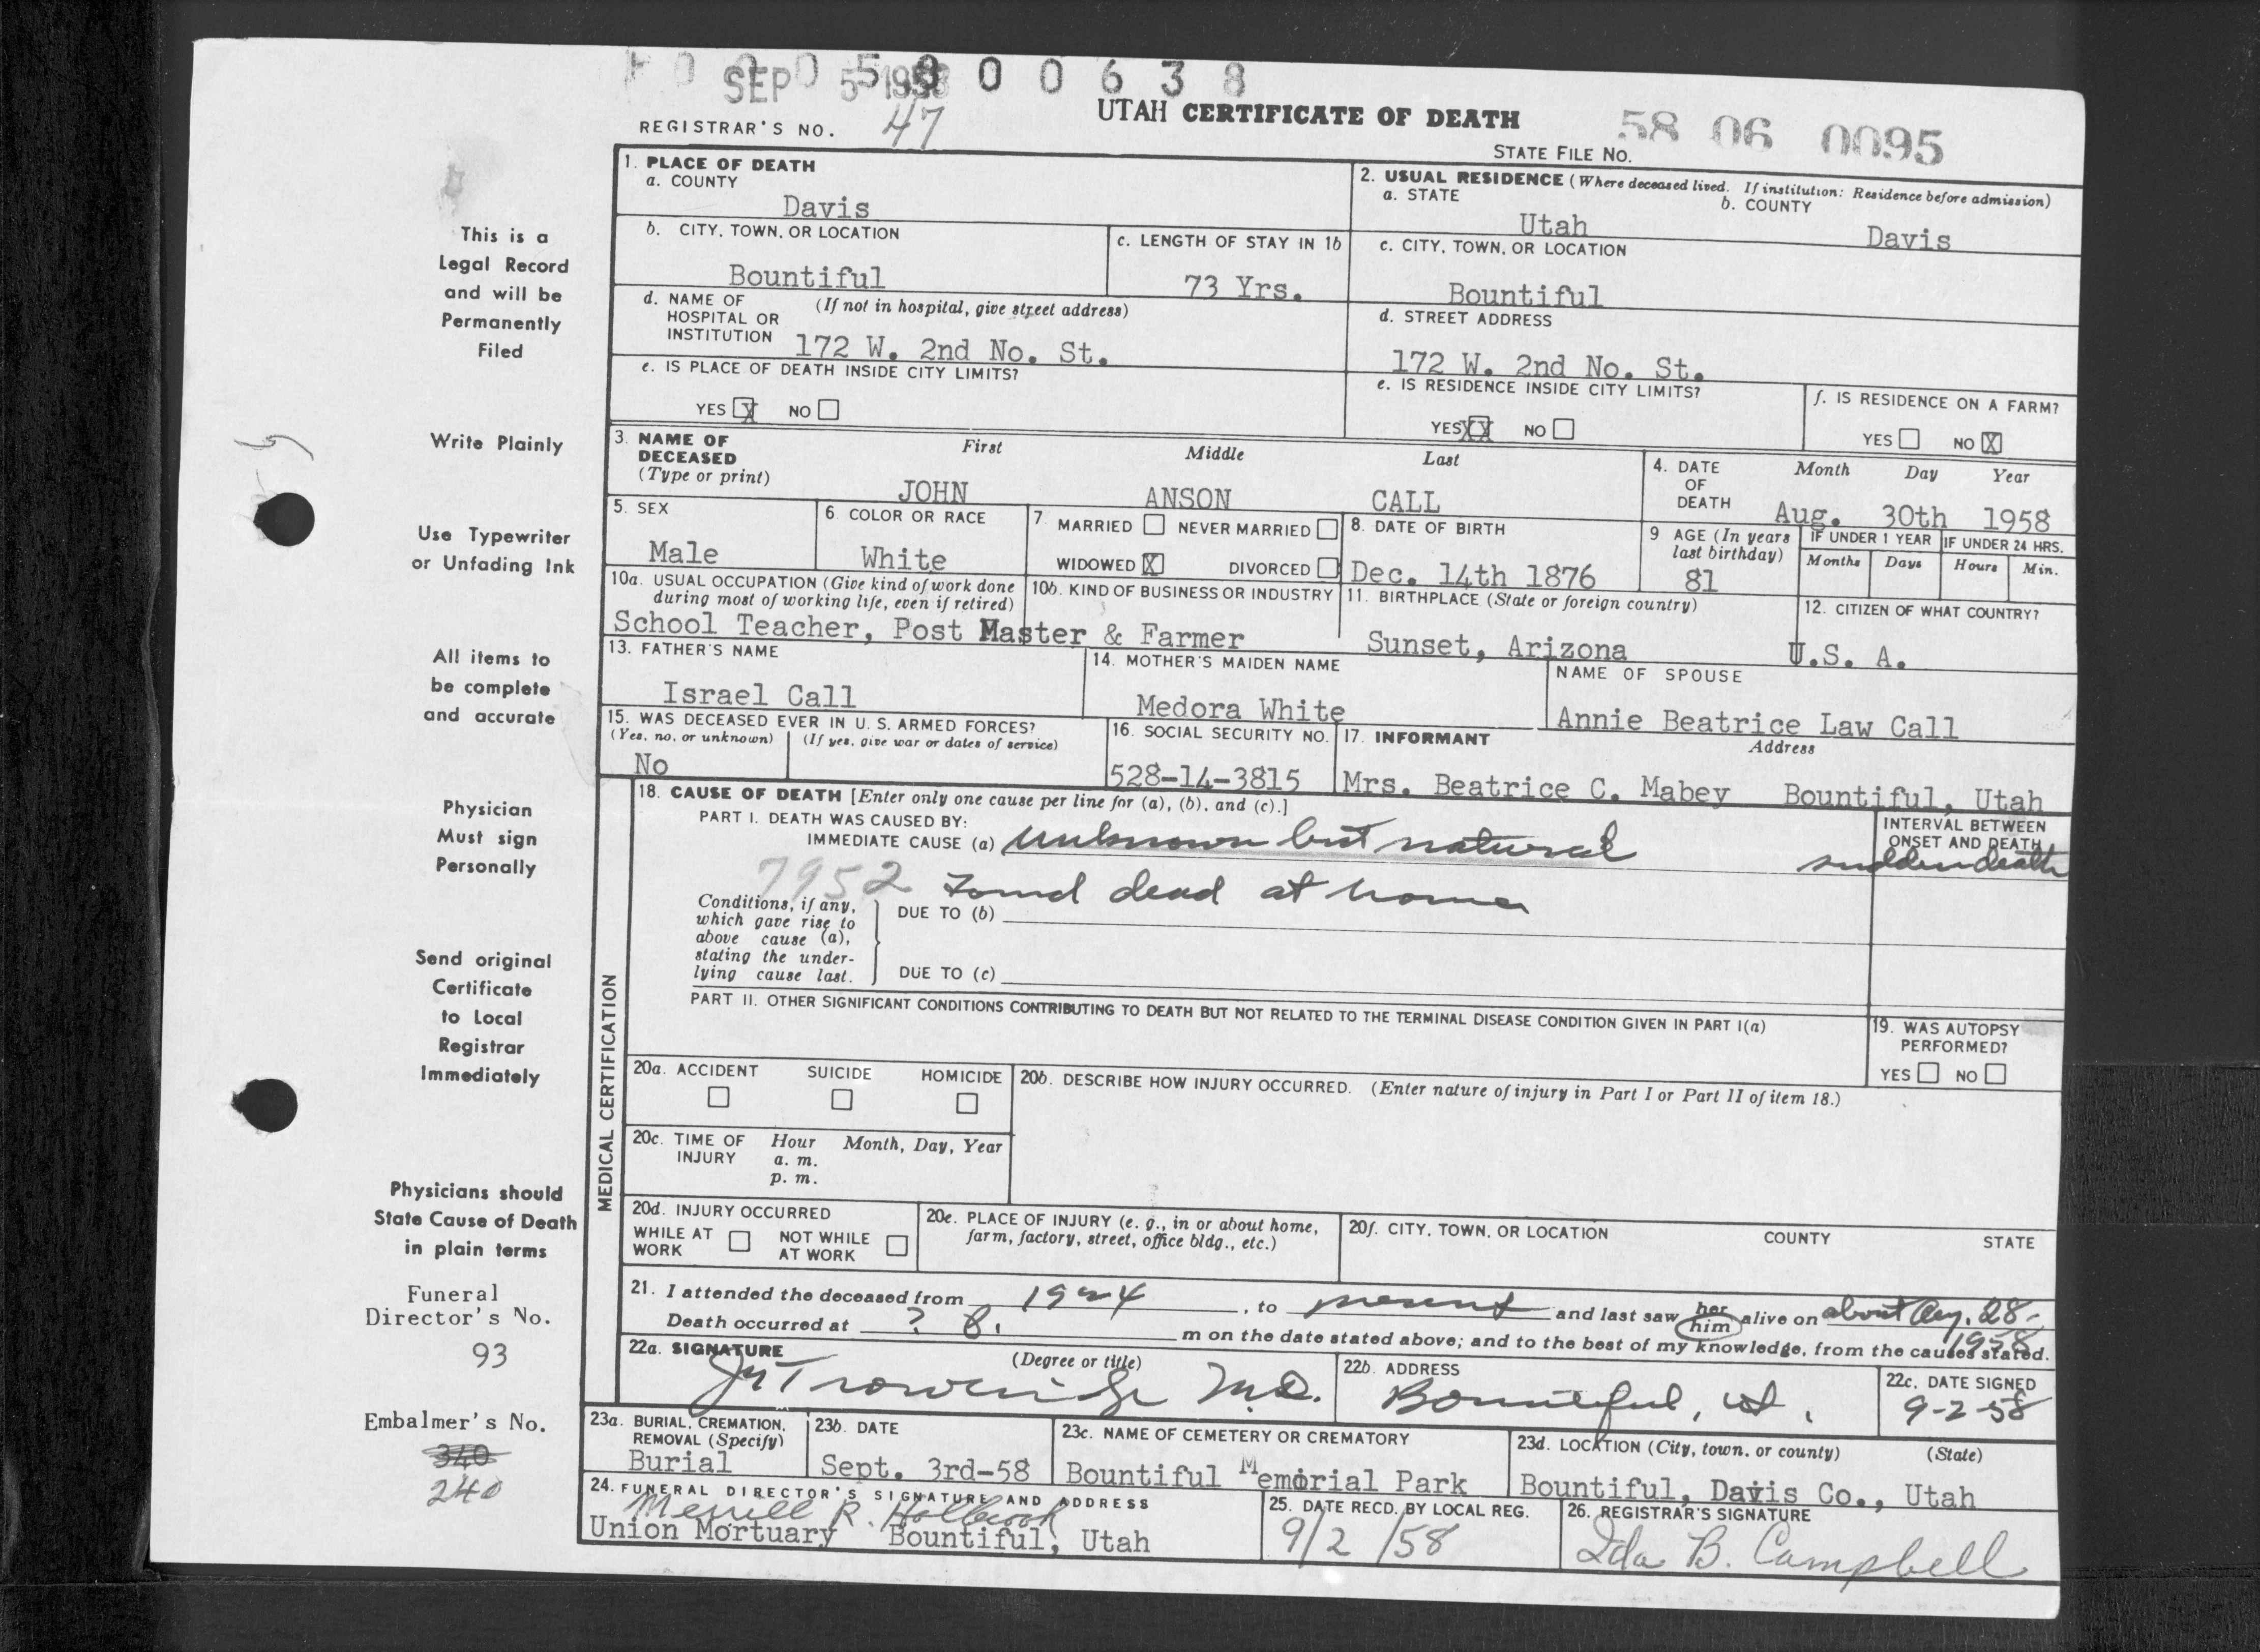 SEP 5 1958
0 0 6 3 8
REGISTRAR'S NO. 47
UTAH CERTIFICATE OF DEATH
STATE FILE NO. 58 06 0095
This is a
Legal Record
and will be
Permanently
Filed
Write Plainly
Use Typewriter
or Unfading Ink
All items to
be complete
and accurate
Physician
Must sign
Personally
Send original
Certificate
to Local
Registrar
Immediately
Physicians should
State Cause of Death
in plain terms
Funeral
Director's No.
93
Embalmer's No.
340
240
1. PLACE OF DEATH
a. COUNTY
Davis
2. USUAL RESIDENCE (Where deceased lived. If institution: Residence before admission)
a. STATE b. COUNTY
Utah Davis
b. CITY, TOWN, OR LOCATION
Bountiful
c. LENGTH OF STAY IN 1b
73 Yrs.
c. CITY, TOWN, OR LOCATION
Bountiful
d. NAME OF (If not in hospital, give street address)
HOSPITAL OR
INSTITUTION 172 W. 2nd No. St.
d. STREET ADDRESS
172 W. 2nd No. St.
e. IS PLACE OF DEATH INSIDE CITY LIMITS?
YES X NO
e. IS RESIDENCE INSIDE CITY LIMITS?
YES XX NO
f. IS RESIDENCE ON A FARM?
YES NO X
3. NAME OF First Middle Last
DECEASED
(Type or print)
JOHN ANSON CALL
4. DATE Month Day Year
OF
DEATH Aug. 30th 1958
5. SEX
Male
6. COLOR OR RACE
White
7. MARRIED NEVER MARRIED
WIDOWED X DIVORCED
8. DATE OF BIRTH
Dec. 14th 1876
9 AGE (In years
last birthday)
81
IF UNDER 1 YEAR IF UNDER 24 HRS.
Months Days Hours Min.
10a. USUAL OCCUPATION (Give kind of work done
during most of working life, even if retired)
10b. KIND OF BUSINESS OR INDUSTRY
School Teacher, Post Master & Farmer
11. BIRTHPLACE (State or foreign country)
Sunset, Arizona
12. CITIZEN OF WHAT COUNTRY?
U.S. A.
13. FATHER'S NAME
Israel Call
14. MOTHER'S MAIDEN NAME
Medora White
NAME OF SPOUSE
Annie Beatrice Law Call
15. WAS DECEASED EVER IN U. S. ARMED FORCES?
(Yes, no, or unknown) (If yes, give war or dates of service)
No
16. SOCIAL SECURITY NO.
528-14-3815
17. INFORMANT Address
Mrs. Beatrice C. Mabey Bountiful, Utah
MEDICAL CERTIFICATION
18. CAUSE OF DEATH [Enter only one cause per line for (a), (b), and (c).]
PART I. DEATH WAS CAUSED BY:
IMMEDIATE CAUSE (a) unknown but natural
INTERVAL BETWEEN
ONSET AND DEATH
sudden death
7952 Found dead at home
Conditions, if any,
which gave rise to
above cause (a),
stating the under-
lying cause last.
DUE TO (b)
DUE TO (c)
PART II. OTHER SIGNIFICANT CONDITIONS CONTRIBUTING TO DEATH BUT NOT RELATED TO THE TERMINAL DISEASE CONDITION GIVEN IN PART I(a)
19. WAS AUTOPSY
PERFORMED?
YES NO
20a. ACCIDENT SUICIDE HOMICIDE
20b. DESCRIBE HOW INJURY OCCURRED. (Enter nature of injury in Part I or Part II of item 18.)
20c. TIME OF Hour Month, Day, Year
INJURY a. m.
p. m.
20d. INJURY OCCURRED
WHILE AT WORK NOT WHILE AT WORK
20e. PLACE OF INJURY (e. g., in or about home,
farm, factory, street, office bldg., etc.)
20f. CITY, TOWN, OR LOCATION COUNTY STATE
21. I attended the deceased from , to present and last saw her him alive on about Aug. 28-
1958
Death occurred at ? m on the date stated above; and to the best of my knowledge, from the causes stated.
22a. SIGNATURE (Degree or title)
J Trowbridge M.D.
22b. ADDRESS
Bountiful, Ut.
22c. DATE SIGNED
9-2-58
23a. BURIAL, CREMATION,
REMOVAL (Specify)
Burial
23b. DATE
Sept. 3rd-58
23c. NAME OF CEMETERY OR CREMATORY
Bountiful Memorial Park
23d. LOCATION (City, town, or county) (State)
Bountiful, Davis Co., Utah
24. FUNERAL DIRECTOR'S SIGNATURE AND ADDRESS
Merrill R. Holbrook
Union Mortuary Bountiful, Utah
25. DATE RECD. BY LOCAL REG.
9/2/58
26. REGISTRAR'S SIGNATURE
Ida B. Campbell